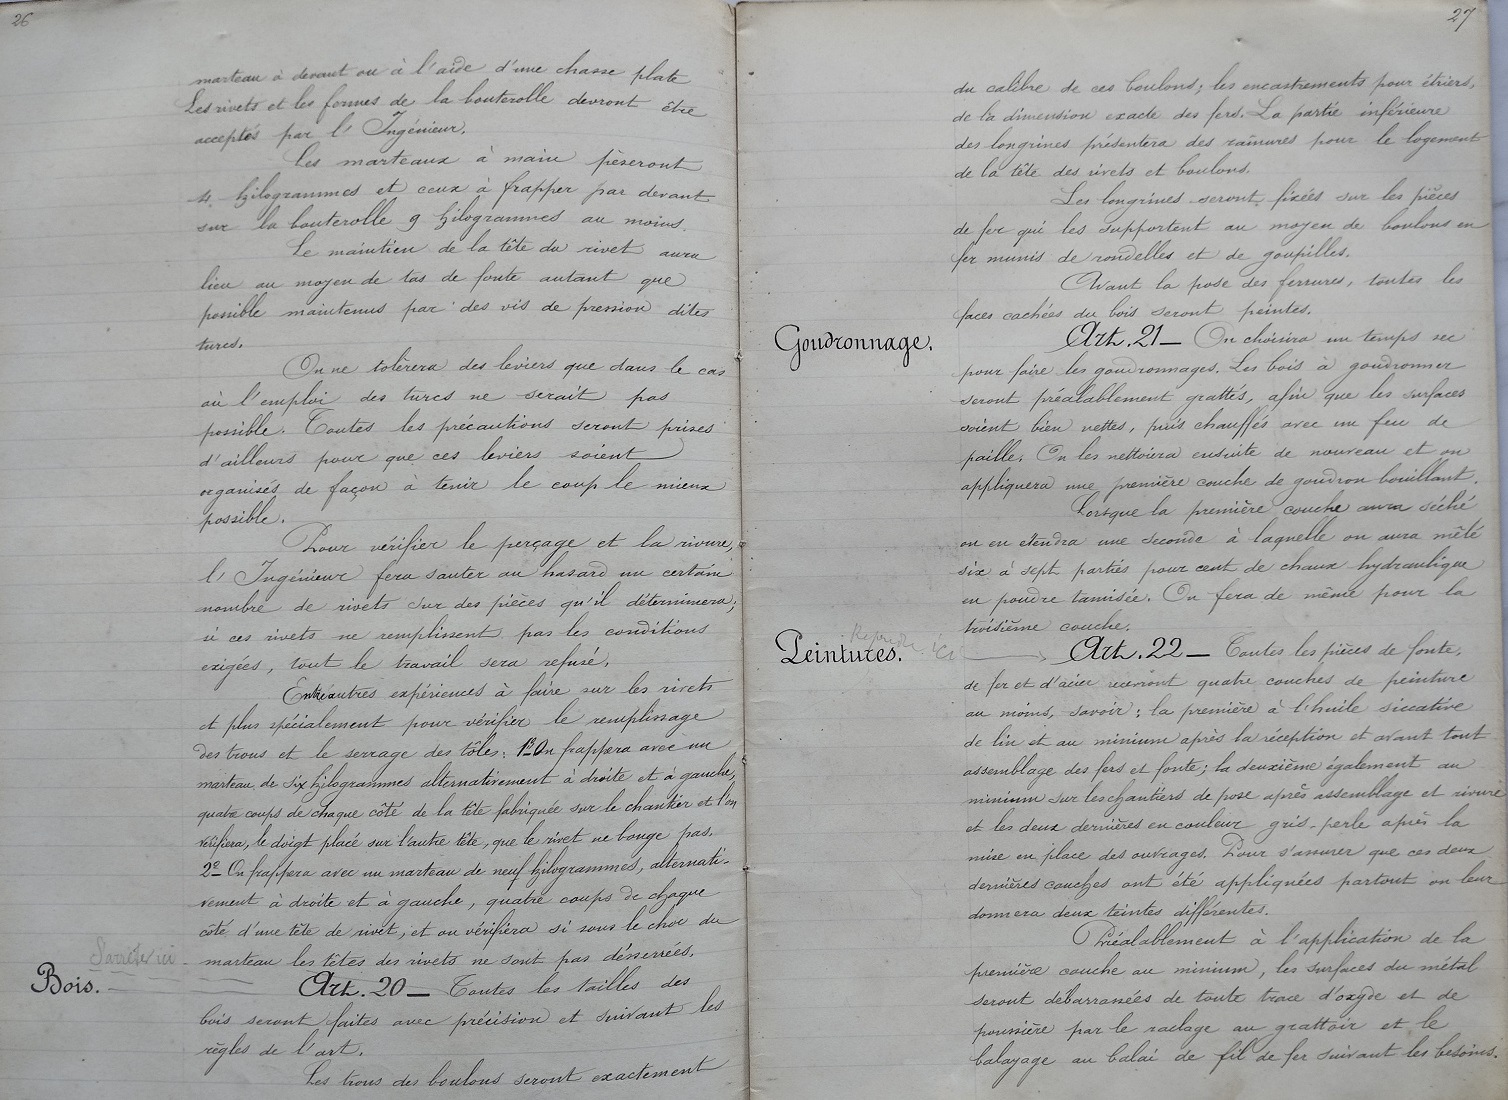 26
marteau à devant ou à l'aide d'une chasse plate
Les rivets et les formes de la bouterolle devront être
acceptés par l'Ingénieur.
Les marteaux à main pèseront
4 kilogrammes et ceux à frapper par devant
sur la bouterolle 9 kilogrammes au moins.
Le maintien de la tête du rivet aura
lieu au moyen de tas de fonte autant que
possible maintenus par des vis de pression dites
turcs.
On ne tolèrera des leviers que dans le cas
où l'emploi des turcs ne serait pas
possible. Toutes les précautions seront prises
d'ailleurs pour que ces leviers soient
organisés de façon à tenir le coup le mieux
possible.
Pour vérifier le perçage et la rivure,
l'Ingénieur fera sauter au hasard un certain
nombre de rivets sur des pièces qu'il déterminera;
si ces rivets ne remplissent pas les conditions
exigées, tout le travail sera refusé.
Entre autres expériences à faire sur les rivets
et plus spécialement pour vérifier le remplissage
des trous et le serrage des tôles: 1º On frappera avec un
marteau de six kilogrammes alternativement à droite et à gauche,
quatre coups de chaque côté de la tête fabriquée sur le chantier et l'on
vérifiera, le doigt placé sur l'autre tête, que le rivet ne bouge pas.
2º On frappera avec un marteau de neuf kilogrammes, alternati-
vement à droite et à gauche, quatre coups de chaque
côté d'une tête de rivet, et on vérifiera si sous le choc du
marteau les têtes des rivets ne sont pas désserrées.
S'arrêter ici
Bois.
Art. 20 — Toutes les tailles des
bois seront faites avec précision et suivant les
règles de l'art.
Les trous des boulons seront exactement
27
du calibre de ces boulons; les encastrements pour étriers,
de la dimension exacte des fers. La partie inférieure
des longrines présentera des rainures pour le logement
de la tête des rivets et boulons.
Les longrines seront fixées sur les pièces
de fer qui les supportent au moyen de boulons en
fer munis de rondelles et de goupilles.
Avant la pose des ferrures, toutes les
faces cachées du bois seront peintes.
Goudronnage.
Art. 21 — On choisira un temps sec
pour faire les goudronnages. Les bois à goudronner
seront préalablement grattés, afin que les surfaces
soient bien nettes, puis chauffés avec un feu de
paille. On les nettoiera ensuite de nouveau et on
appliquera une première couche de goudron bouillant.
Lorsque la première couche aura séché
on en étendra une seconde à laquelle on aura mêlé
six à sept parties pour cent de chaux hydraulique
en poudre tamisée. On fera de même pour la
troisième couche.
Reprendre ici
Peintures.
Art. 22 — Toutes les pièces de fonte,
de fer et d'acier recevront quatre couches de peinture
au moins, savoir: la première à l'huile siccative
de lin et au minium après la réception et avant tout
assemblage des fers et fonte; la deuxième également au
minium sur les chantiers de pose après assemblage et rivure
et les deux dernières en couleur gris-perle après la
mise en place des ouvrages. Pour s'assurer que ces deux
dernières couches ont été appliquées partout on leur
donnera deux teintes différentes.
Préalablement à l'application de la
première couche au minium, les surfaces du métal
seront débarrassées de toute trace d'oxyde et de
poussière par le raclage au grattoir et le
balayage au balai de fil de fer suivant les besoins.